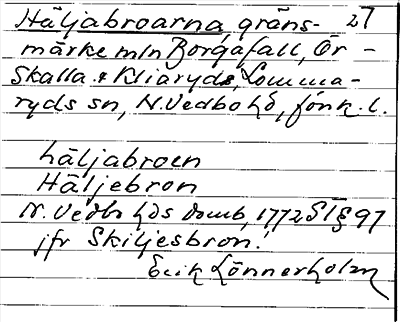 Häljabroarna, gräns- 27
märke mln Borgåfall, Ör-
skalla & Kliaryds, Lomma-
ryds sn, N. Vedbo hd, Jönk. l.
häljabroen
Häljebron
N. Vedbo hds domb, 1772 ST § 97
jfr Skiljesbron!
Erik Lönnerholm